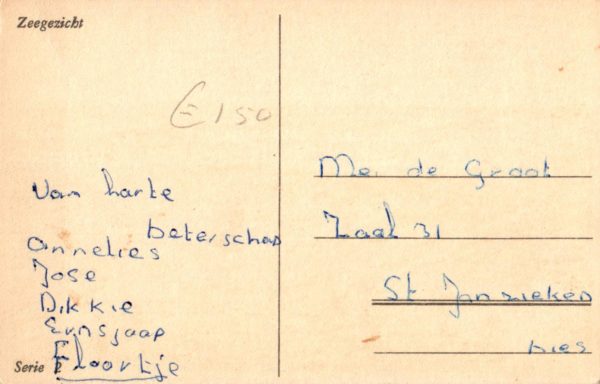 Zeegezicht
€ 1 50
Van harte
beterschap
Annelies
Jose
Dikkie
Ernsjaap
Floortje
Serie
Me. de Groot
Zaal 31
St Janzieken
hies